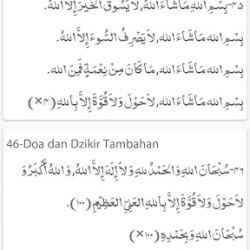 ٤٥-بِسْمِ اللهِ مَاشَاءَ الله, لاَ يَسُوْقُ الْخَيْرَ إِلاَّ اللهُ.
بِسْمِ اللهِ مَاشَاءَ الله, لاَ يَصْرِفُ السُّوءَ إِلاَّ اللهُ.
بِسْمِ اللهِ مَاشَاءَ الله, مَا كَانَ مِنْ نِعْمَةٍ فَمِنَ الله.
بِسْمِ اللهِ مَاشَاءَ الله, لاَحَوْلَ وَلاَ قُوَّةَ إِلاَّ بِاللهِ (٣×)
46-Doa dan Dzikir Tambahan
٤٦-سُبْحَانَ اللهِ وَالْحَمْدُ للهِ وَلاَ إِلَهَ إِلاَّ اللهُ, وَاللهُ أَكْبَرُ وَ
لاَحَوْلَ وَلاَ قُوَّةَ إِلاَّ بِاللهِ الْعَلِيِّ الْعَظِيْمِ (١٠٠).
سُبْحَانَ اللهِ وَبِحَمْدِهِ (١٠٠×)